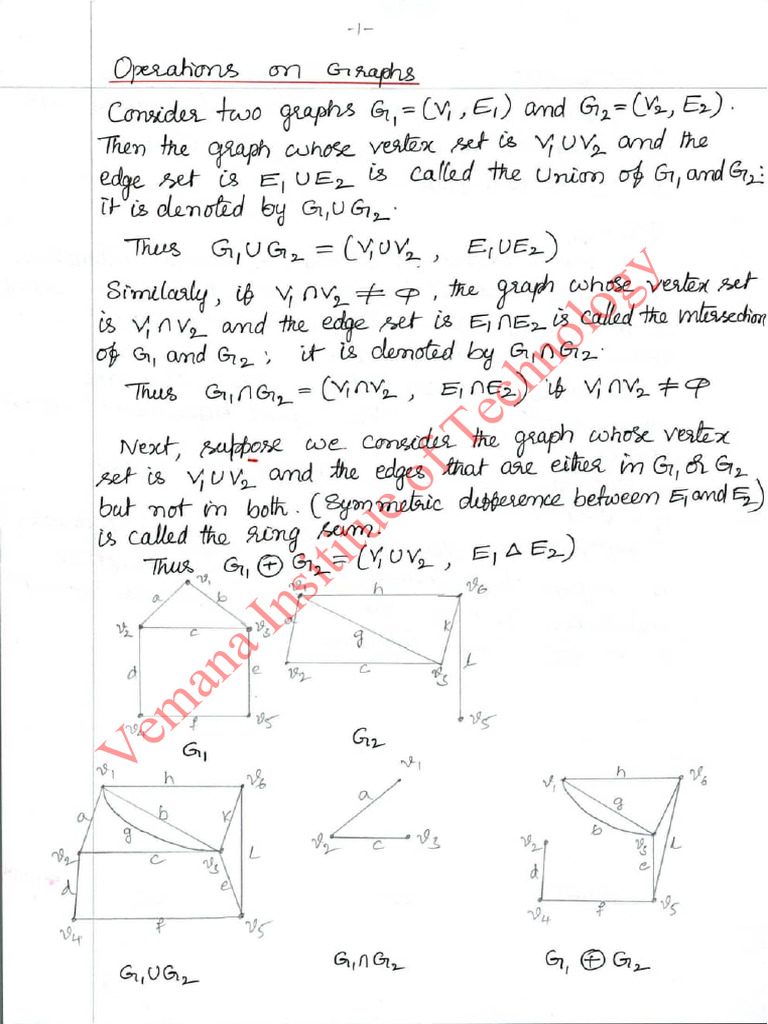 -1-
Operations on Graphs
Consider two graphs G₁=(V₁, E₁) and G₂=(V₂, E₂).
Then the graph whose vertex set is V₁∪V₂ and the
edge set is E₁∪E₂ is called the Union of G₁ and G₂:
it is denoted by G₁∪G₂.
Thus G₁∪G₂ = (V₁∪V₂, E₁∪E₂)
Similarly, if V₁∩V₂ ≠ Φ, the graph whose vertex set
is V₁∩V₂ and the edge set is E₁∩E₂ is called the intersection
of G₁ and G₂; it is denoted by G₁∩G₂.
Thus G₁∩G₂ = (V₁∩V₂, E₁∩E₂) if V₁∩V₂ ≠ Φ
Next, suppose we consider the graph whose vertex
set is V₁∪V₂ and the edges that are either in G₁ or G₂
but not in both. (Symmetric difference between E₁ and E₂)
is called the ring sum.
Thus G₁ ⊕ G₂ = (V₁∪V₂, E₁ Δ E₂)
Vemana Institue of Technology
v₁
a b
v₂ c v₃
d e
v₄ f v₅
G₁
h v₆
g k
v₂ c v₃ L
v₅
G₂
v₁ h v₆
a b k
g
v₂ c v₃ L
d e
v₄ f v₅
G₁∪G₂
v₁
a
v₂ c v₃
G₁∩G₂
v₁ h v₆
g
b
v₂ v₃ L
d e
v₄ f v₅
G₁ ⊕ G₂